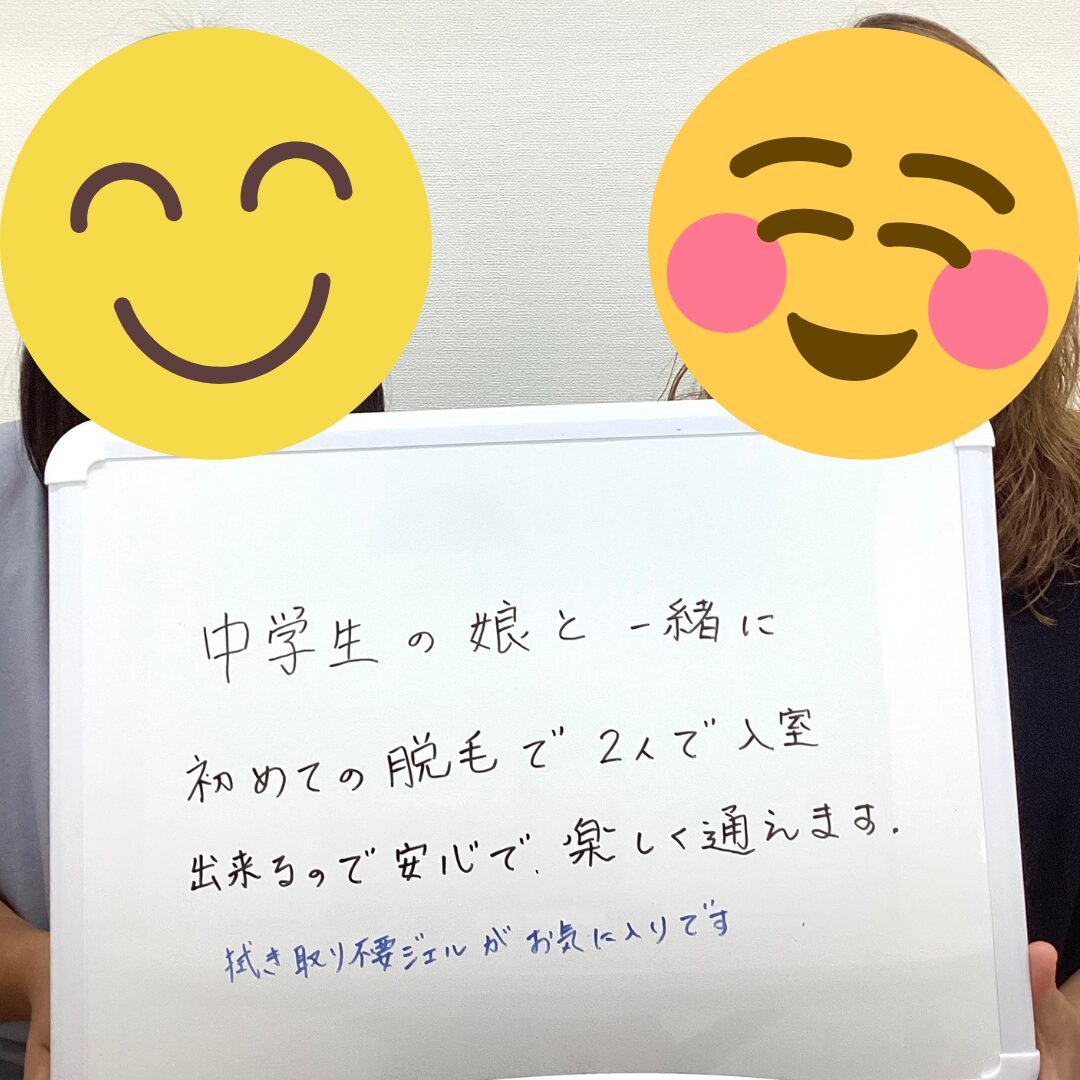 中学生の娘と一緒に
初めての脱毛で2人で入室
出来るので安心で、楽しく通えます.
拭き取り不要ジェルがお気に入りです